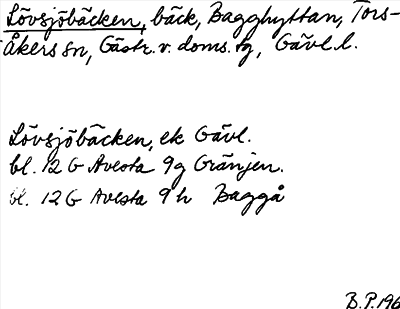 Lövsjöbäcken, bäck, Bagghyttan, Tors-
Åkers sn, Gästr. v. doms. tg, Gävl. l.
Lövsjöbäcken, ek Gävl.
bl. 12 G Avesta 9g Gränjen.
bl. 12 G Avesta 9 h Baggå
B.P.196